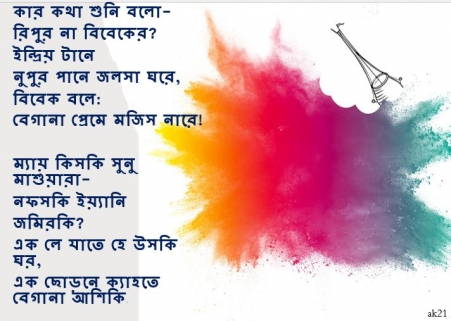 কার কথা শুনি বলো-
রিপুর না বিবেকের?
ইন্দ্রিয় টানে
নুপুর পানে জলসা ঘরে,
বিবেক বলে:
বেগানা প্রেমে মজিস নারে!
ম্যায় কিসকি সুনু
মাশুয়ারা-
নফসকি ইয়্যানি
জমিরকি?
এক লে যাতে হে উসকি
ঘর,
এক ছোড়নে ক্যাহতে
বেগানা আশিকি
ak21